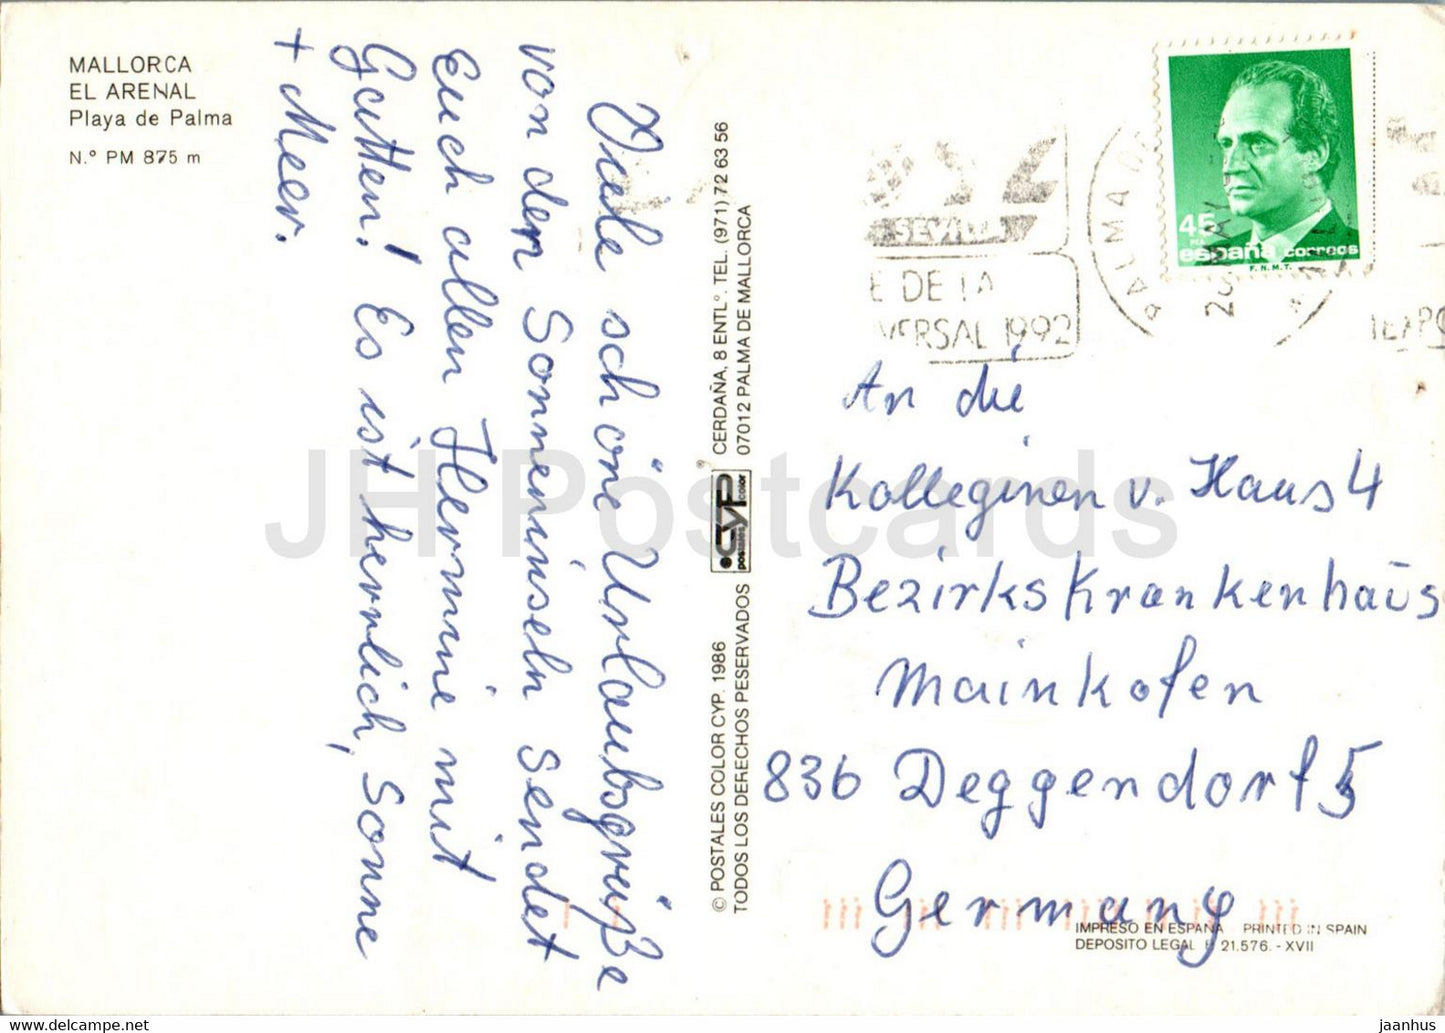 MALLORCA
EL ARENAL
Playa de Palma
N.º PM 875 m
Viele schöne Urlaubsgrüße
von den Sonneninseln sendet
Euch allen Hermine mit
Gatten! Es ist herrlich, Sonne
+ Meer.
© POSTALES COLOR CYP. 1986
TODOS LOS DERECHOS PESERVADOS
postales CYP color
CERDAÑA, 8 ENTLº. TEL. (971) 72 63 56
07012 PALMA DE MALLORCA
SEVILLA
E DE LA
VERSAL 1992
PALMA DE
45
españa correos
F.N.M.T.
An die
Kolleginen v. Haus 4
Bezirkskrankenhaus
Mainkofen
836 Deggendorf 5
Germany
IMPRESO EN ESPAÑA - PRINTED IN SPAIN
DEPOSITO LEGAL B 21.576. - XVII
JH Postcards
jaanhus www.jhpostcards.com